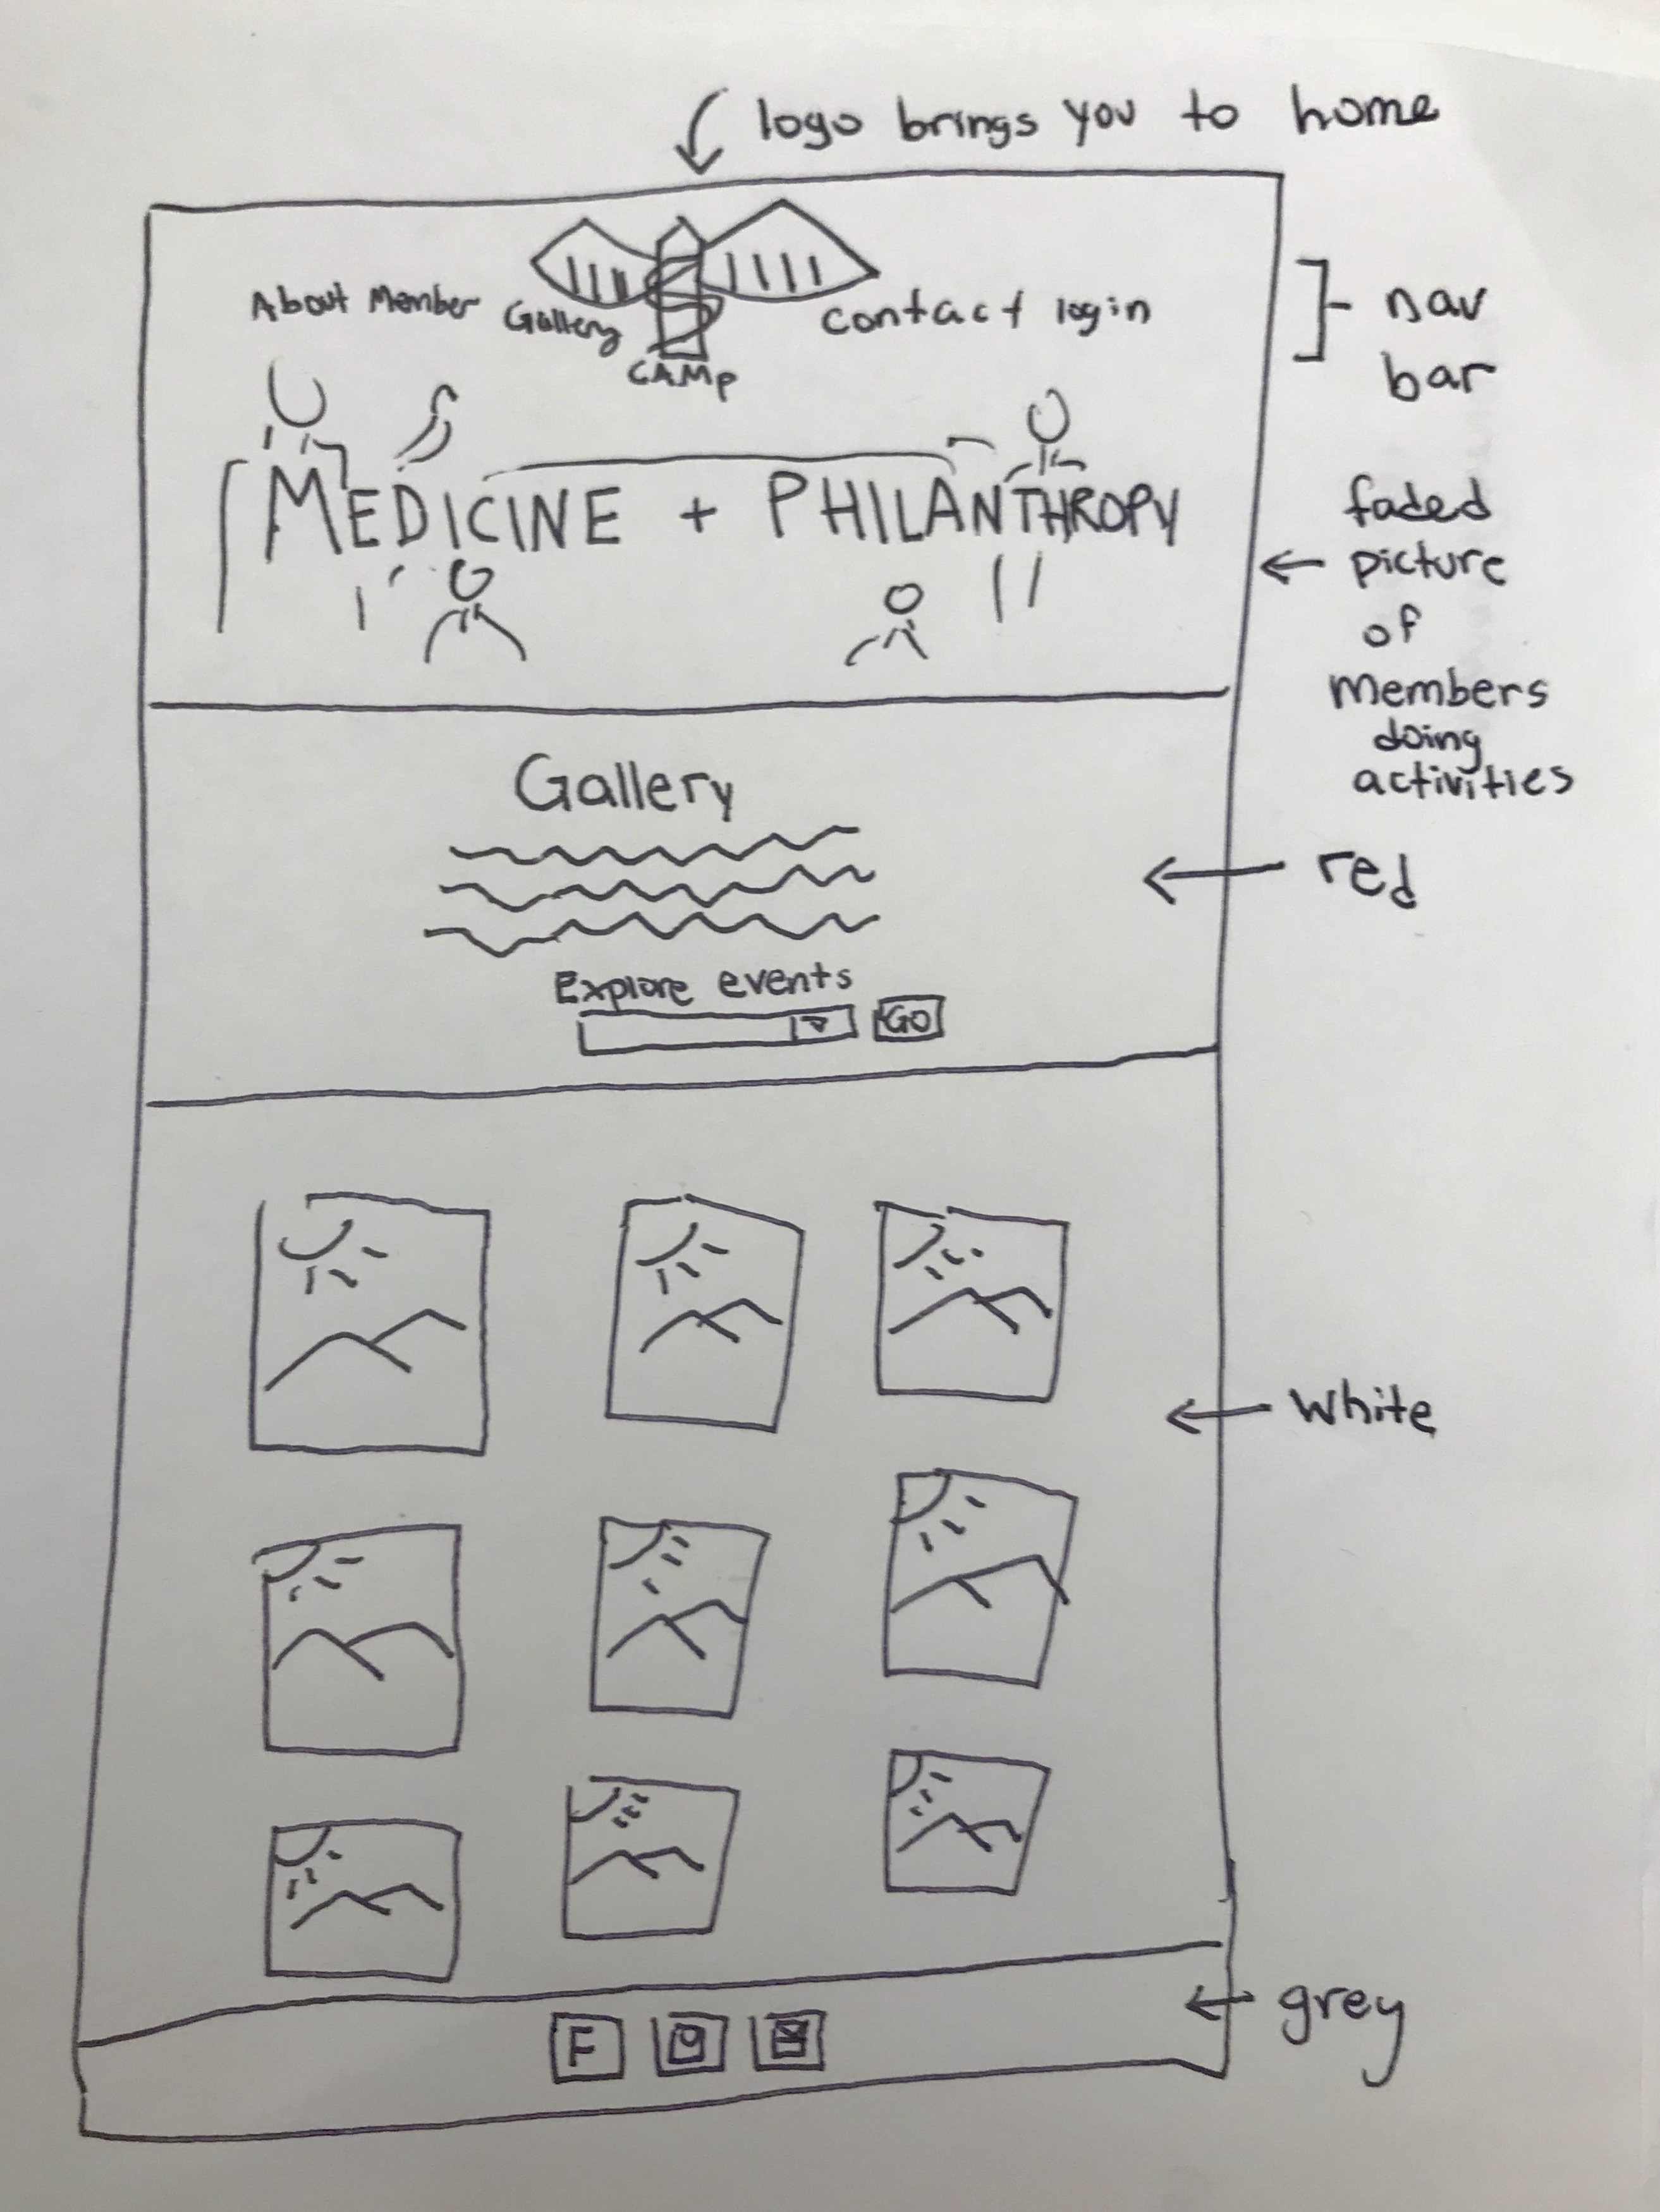 logo brings you to home
About Member Gallery
contact login
CAMP
nav
bar
MEDICINE + PHILANTHROPY
faded
picture
of
members
doing
activities
Gallery
red
Explore events
GO
white
grey
F